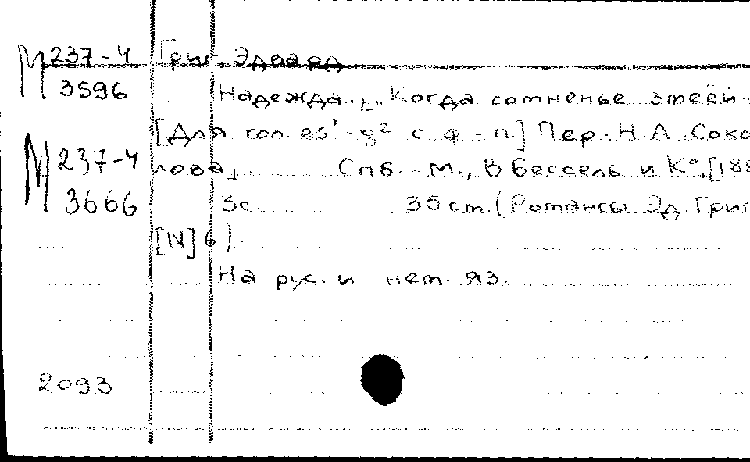 М 237-4 Григ, Эдвард
3596 Надежда. „Когда сомненье змеёй
[Для гол. es¹-g² с ф-п.] Пер. Н. А. Соко-
М 237-4 лова„ Спб.-М., В Бессель и К°, [188
3666 3с. 35 см. (Романсы Эд. Григ
[№] 6).
На рус. и нем. яз.
2093